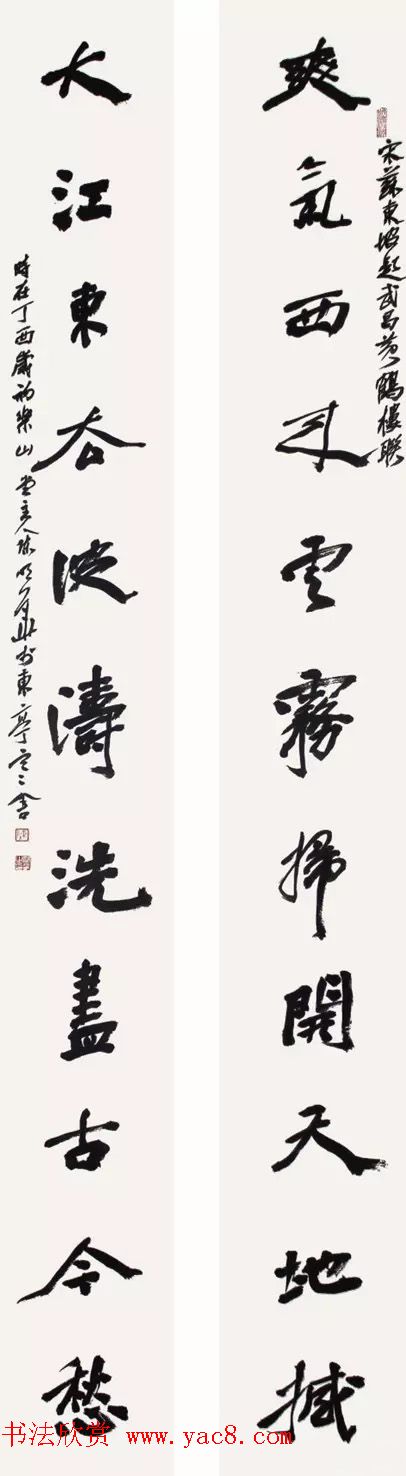 爽氣西来雲霧掃開天地撼
宋蘇東坡題武昌黄鶴樓聯
大江東去波濤洗盡古今愁
時在丁酉歲初樂山堂主人陳
書法欣赏 www.yac8.com